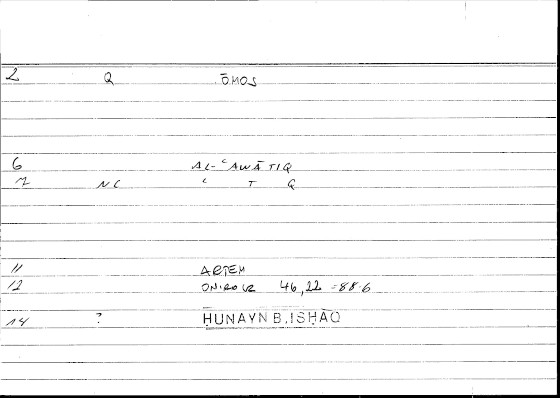 2 Q ŌMOS
6 AL-ʿAWĀTIQ
7 NC ʿ T Q
11 ARTEM
12 ONIROCR 46,22 = 88.6
14 ? ḤUNAYN B. ISḤĀQ